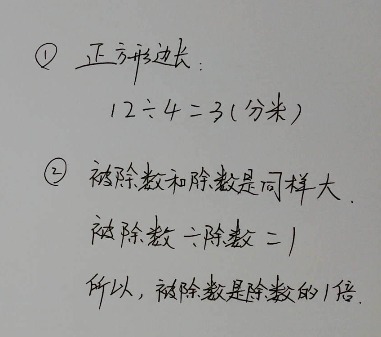 ① 正方形边长:
12÷4=3(分米)
② 被除数和除数是同样大.
被除数÷除数=1
所以,被除数是除数的1倍.